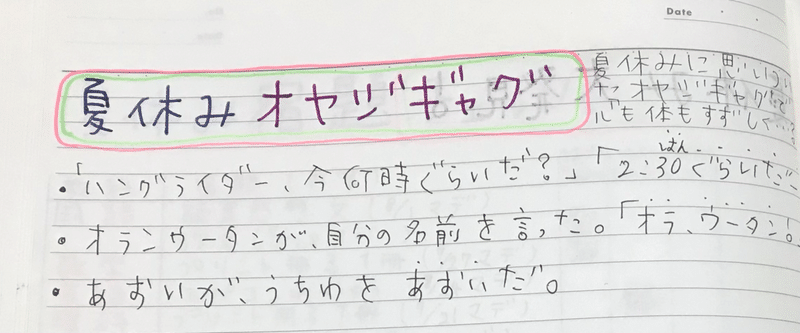 Date
夏休み オヤジギャグ
夏休みに思いつい
た オヤジギャグで
心も体もすずしく…?
はん
・「ハングライダー、今何時ぐらいだ?」「2:30ぐらいだー
・オランウータンが、自分の名前を言った。「オラ、ウータン!
・あおいが、うちわをあおいだ。